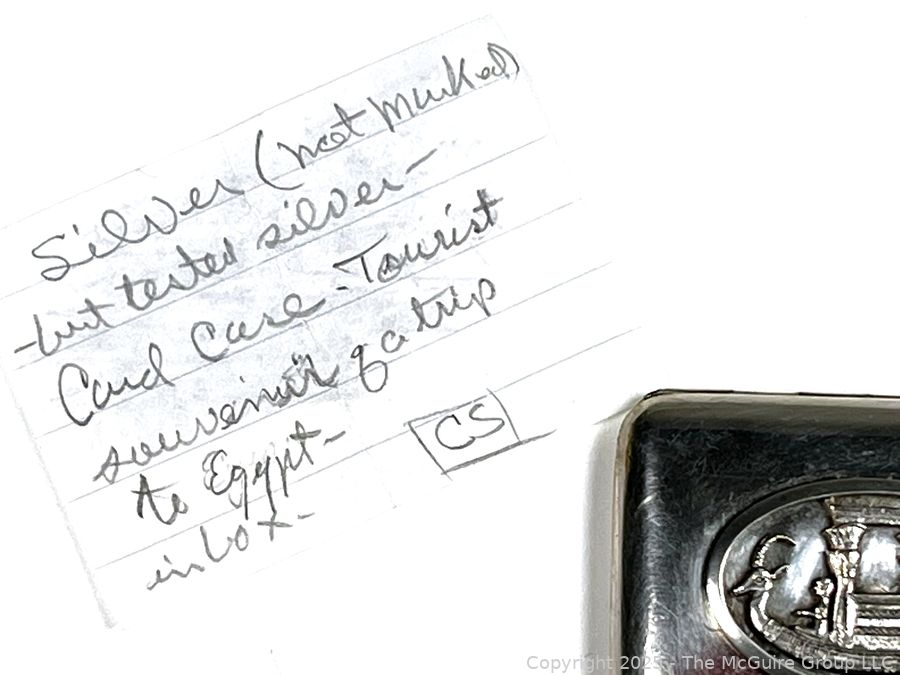 Silver (not marked)
-but tested silver-
Card Case - Tourist
souvenir of a trip
to Egypt-
in box-
CS
Copyright 2023 - The McGuire Group LLC